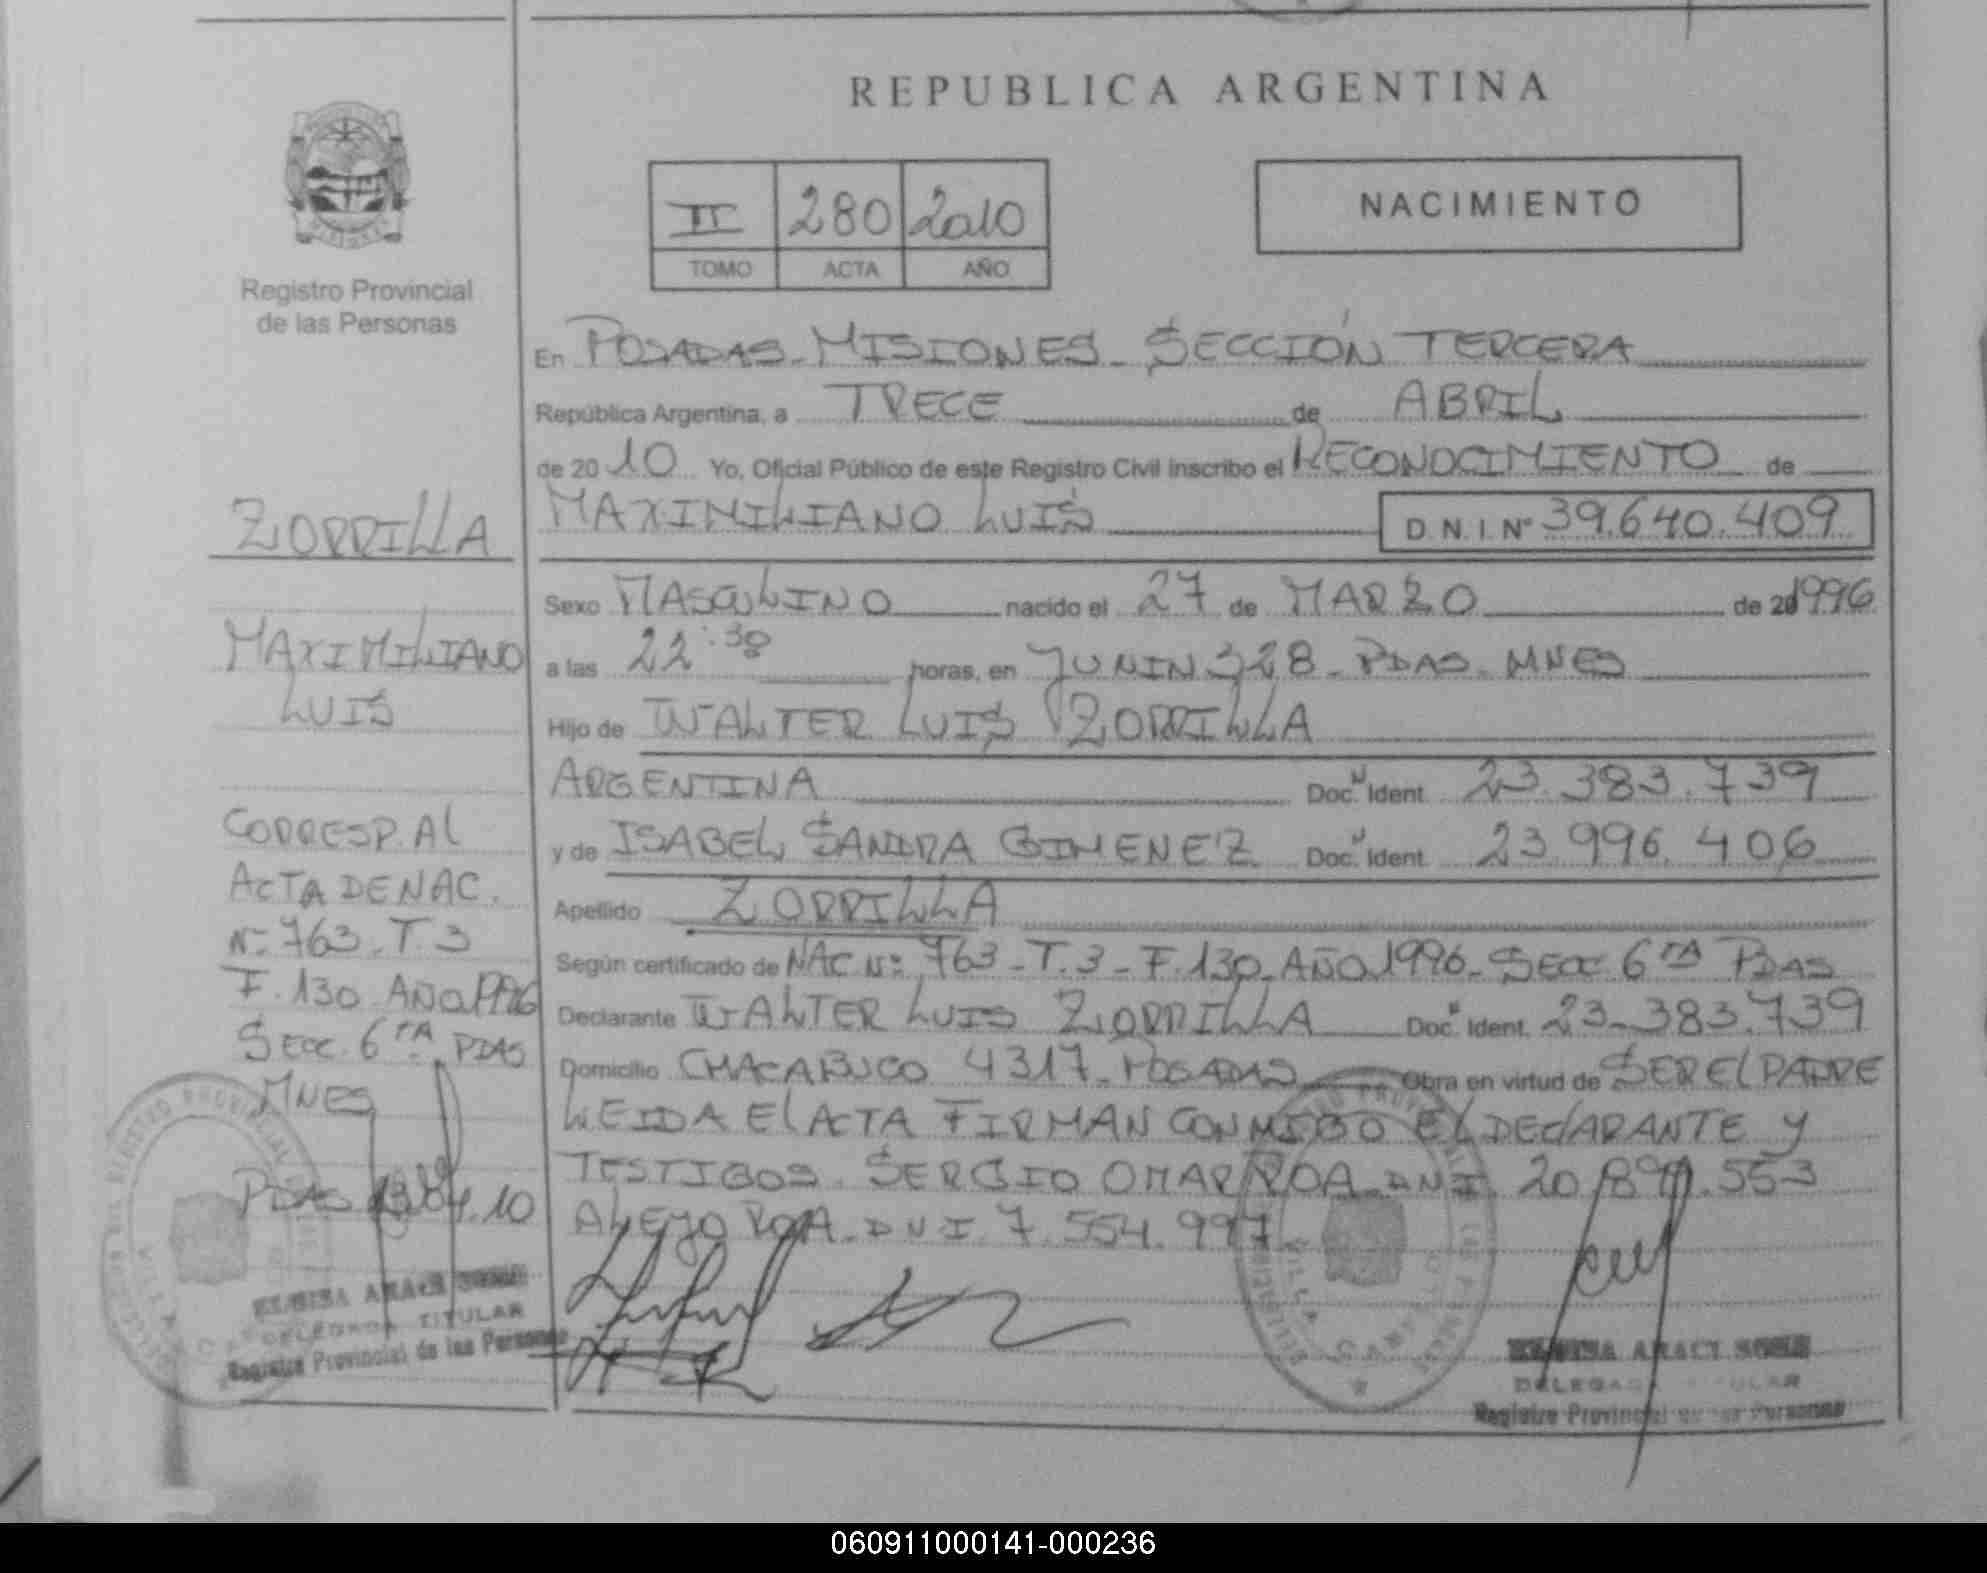 REPUBLICA ARGENTINA
NACIMIENTO
II 280 2010
TOMO ACTA AÑO
Registro Provincial
de las Personas
ZORRILLA
MAXIMILIANO
LUIS
CORRESP. AL
ACTA DE NAC.
Nº 763 - T. 3
F. 130 AÑO 1996
SECC. 6 TA PDAS
MNES
PDAS 13.04.10
DELEGADA TITULAR
Registro Provincial de las Personas
En POSADAS - MISIONES - SECCIÓN TERCERA
República Argentina, a TRECE de ABRIL
de 2010 Yo, Oficial Público de este Registro Civil inscribo el RECONOCIMIENTO de
MAXIMILIANO LUIS D.N.I. Nº 39.640.409
Sexo MASCULINO nacido el 27 de MARZO de 1996
a las 22:30 horas, en JUNIN 328 - PDAS - MNES
Hijo de WALTER LUIS ZORRILLA
ARGENTINA Doc. Ident. 23.383.739
y de ISABEL SANDRA GIMENEZ Doc. Ident. 23.996.406
Apellido ZORRILLA
Según certificado de NAC Nº 763 - T. 3 - F. 130 - AÑO 1996 - SECC 6 TA PDAS
Declarante WALTER LUIS ZORRILLA Doc. Ident. 23.383.739
Domicilio CHACABUCO 4317 - POSADAS Obra en virtud de SER EL PADRE
LEIDA EL ACTA FIRMAN CONMIGO EL DECLARANTE Y
TESTIGOS. SERGIO OMAR ROA - DNI 20.897.553
ALEJO ROA - DNI. 7.554.997
ARACI
DELEGADA TITULAR
Registro Provincial de las Personas
060911000141-000236